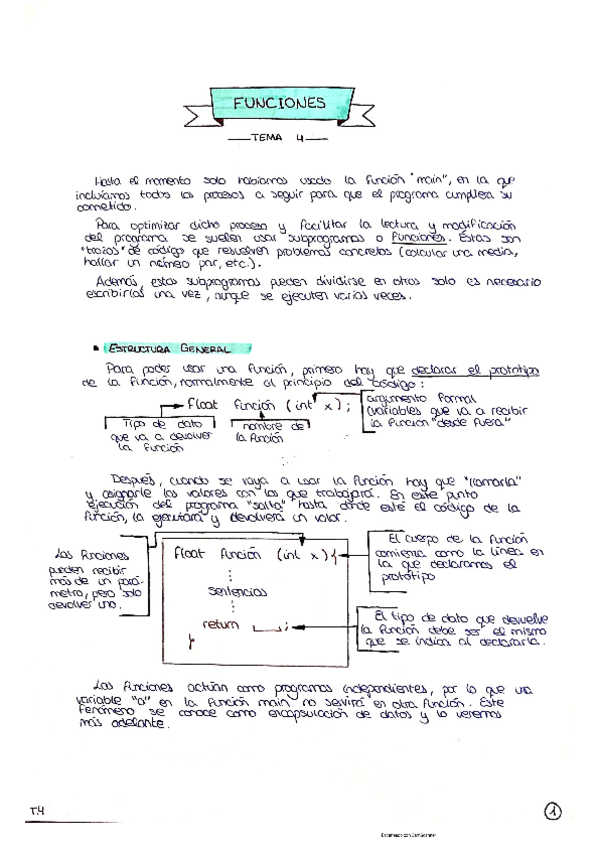 FUNCIONES
TEMA 4
Hasta el momento solo habíamos usado la función "main", en la que
incluíamos todos los procesos a seguir para que el programa cumpliera su
cometido.
Para optimizar dicho proceso y facilitar la lectura y modificación
del programa se suelen usar subprogramas o funciones. Estas son
"trozos" de código que resuelven problemas concretos (calcular una media,
hallar un número par, etc.).
Además, estos subprogramas pueden dividirse en otros solo es necesario
escribirlos una vez, aunque se ejecuten varias veces.
▪ ESTRUCTURA GENERAL
Para poder usar una función, primero hay que declarar el prototipo
de la función, normalmente al principio del código:
float función (int x);
Tipo de dato
que va a devolver
la función
nombre de
la función
argumento formal
(variables que va a recibir
la función "desde fuera"
Después, cuando se vaya a usar la función hay que "llamarla"
y asignarle los valores con los que trabajará. En este punto
ejecución del programa "salta" hasta donde esté el código de la
función, la ejecutará y devolverá un valor.
Las funciones
pueden recibir
más de un pará-
metro, pero solo
devolver uno.
float función (int x){
⋮
sentencias
⋮
return ___;
}
El cuerpo de la función
comienza como la línea en
la que declaramos el
prototipo
El tipo de dato que devuelve
la función debe ser el mismo
que se indica al declararla.
Las funciones actúan como programas independientes, por lo que una
variable "a" en la función main no servirá en otra función. Este
fenómeno se conoce como encapsulación de datos y lo veremos
más adelante.
T.4
1
Escaneado con CamScanner